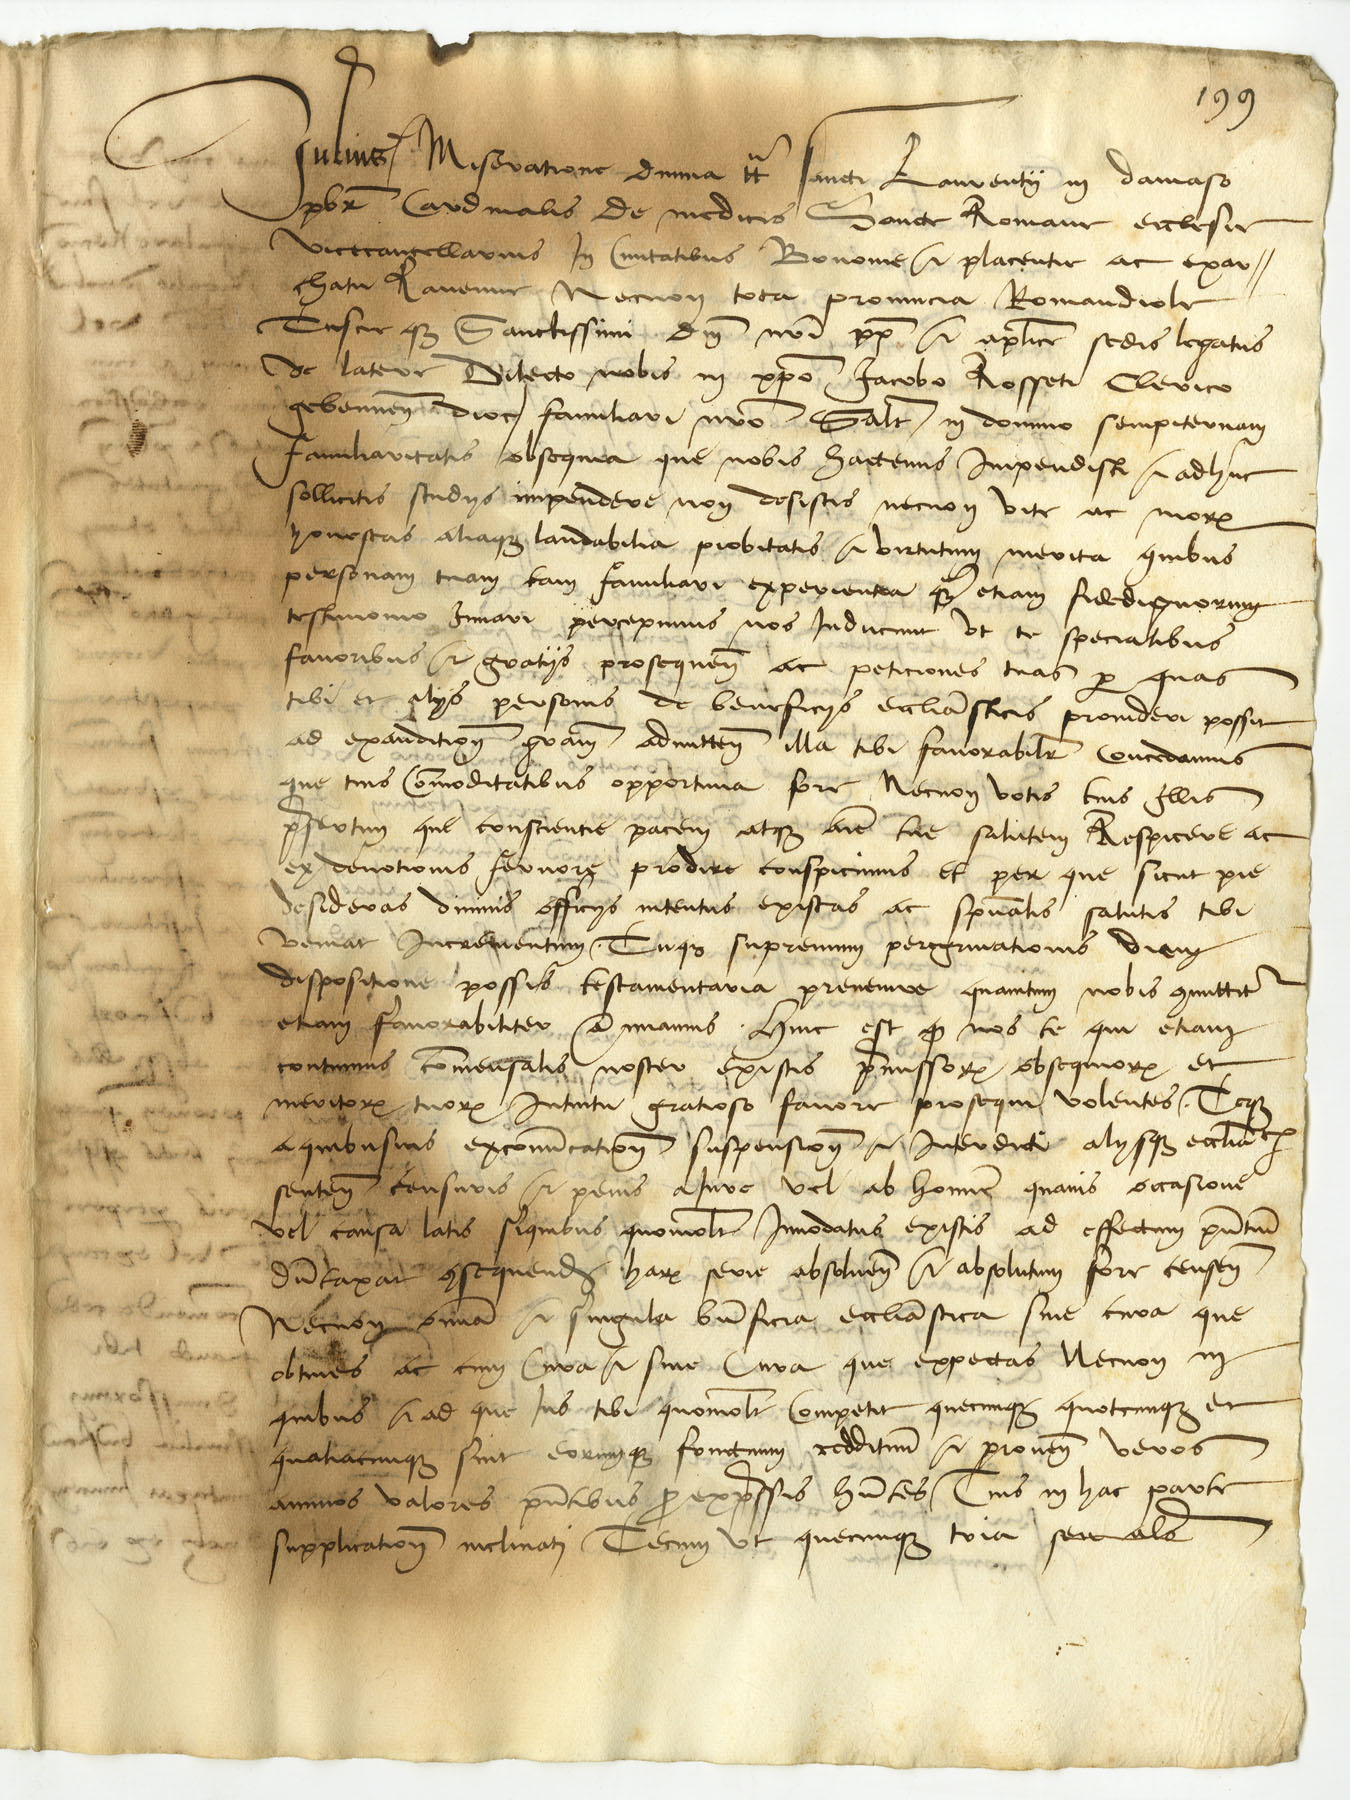 199
Julius Miseratione diuina tt sancti Laurentij in damaso
pbr Cardinalis de medicis Sancte Romane ecclesie
vicecancellarius In Ciuitatibus Bononie et placentie ac exar//
chatu Rauenne Necnon tota prouincia Romandiole
Tuscie qz Sanctissimi dni nri pp et aplice sedis legatus
de latere Dilecto nobis in xpo Jacobo Rosseti Clerico
gebennen dioc familiari nro Salt in domino sempiternam
Familiaritatis obsequia que nobis hactenus Impendisti et adhuc
sollicitis studijs impendere non desistis necnon vite ac morx
honestas aliaqz laudabilia probitatis et virtutum merita quibus
personam tuam tam familiari experientia qz etiam fidedignorum
testimonio Iuuari percepimus nos Inducunt vt te specialibus
fauoribus et gratijs prosequen ac peticiones tuas per quas
tibi et alijs personis de beneficijs eccliasticis prouideri possit
ad exauditionis gram admitten illa tibi fauorabilr Concedamus
que tuis Comoditatibus opportuna fore Necnon votis tuis illis
presertim que conscientie pacem atqz aie tue salutem Respicere ac
ex deuotionis feruore prodire conspicimus et per que sicut pie
desideras diuinis officijs intentus existas ac spualis salutis tibi
veniat Incrementum. Tuqz supremum peregrinationis diem
dispositione possis testamentaria preuenire quantum nobis permittitr
etiam fauorabiliter annuamus. Hinc est q nos te qui etiam
continuus comensalis noster existis premissorx obsequiorx et
meritorx tuorx Intuitu gratioso fauore prosequi volentes. Teqz
a quibusuis excomicationis suspensionis et Interdicti alijsqz eccliasticis
senten censuris et penis a Jure vel ab homine quauis occasione
vel causa latis siquibus quomolt Innodatus existis ad effectum pntium
duntaxat consequend harx serie absoluen et absolutum fore censen
Necnon omia et singula bnficia eccliastica sine cura que
obtines ac cum Cura et sine Cura que expectas Necnon in
quibus et ad que Ius tibi quomolt Competit quecunqz quotcunqz et
qualiacunqz sint eorumqz fructuum reddituum et prouen veros
annuos valores pntibus pro expressis hntes Tuis in hac parte
supplication inclinati Tecum vt quecunqz tria seu als